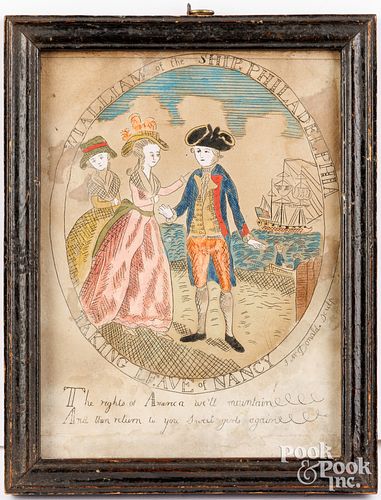 WILLIAM of the SHIP PHILADELPHIA
TAKING LEAVE of NANCY
The rights of America we'll mountain
And then return to you Sweet girls again
POOK
& POOK
INC.